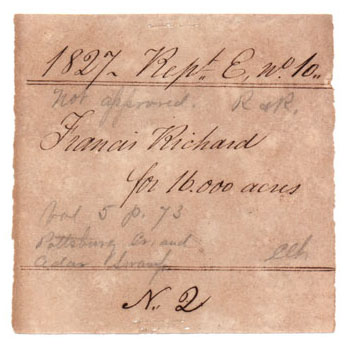 1827 Rept. E, No. 10.
Not approved. R & R.
Francis Richard
for 16.000 acres
Vol 5 p. 73
Pottsburg Cr. and
Cedar Swamp.
N. 2